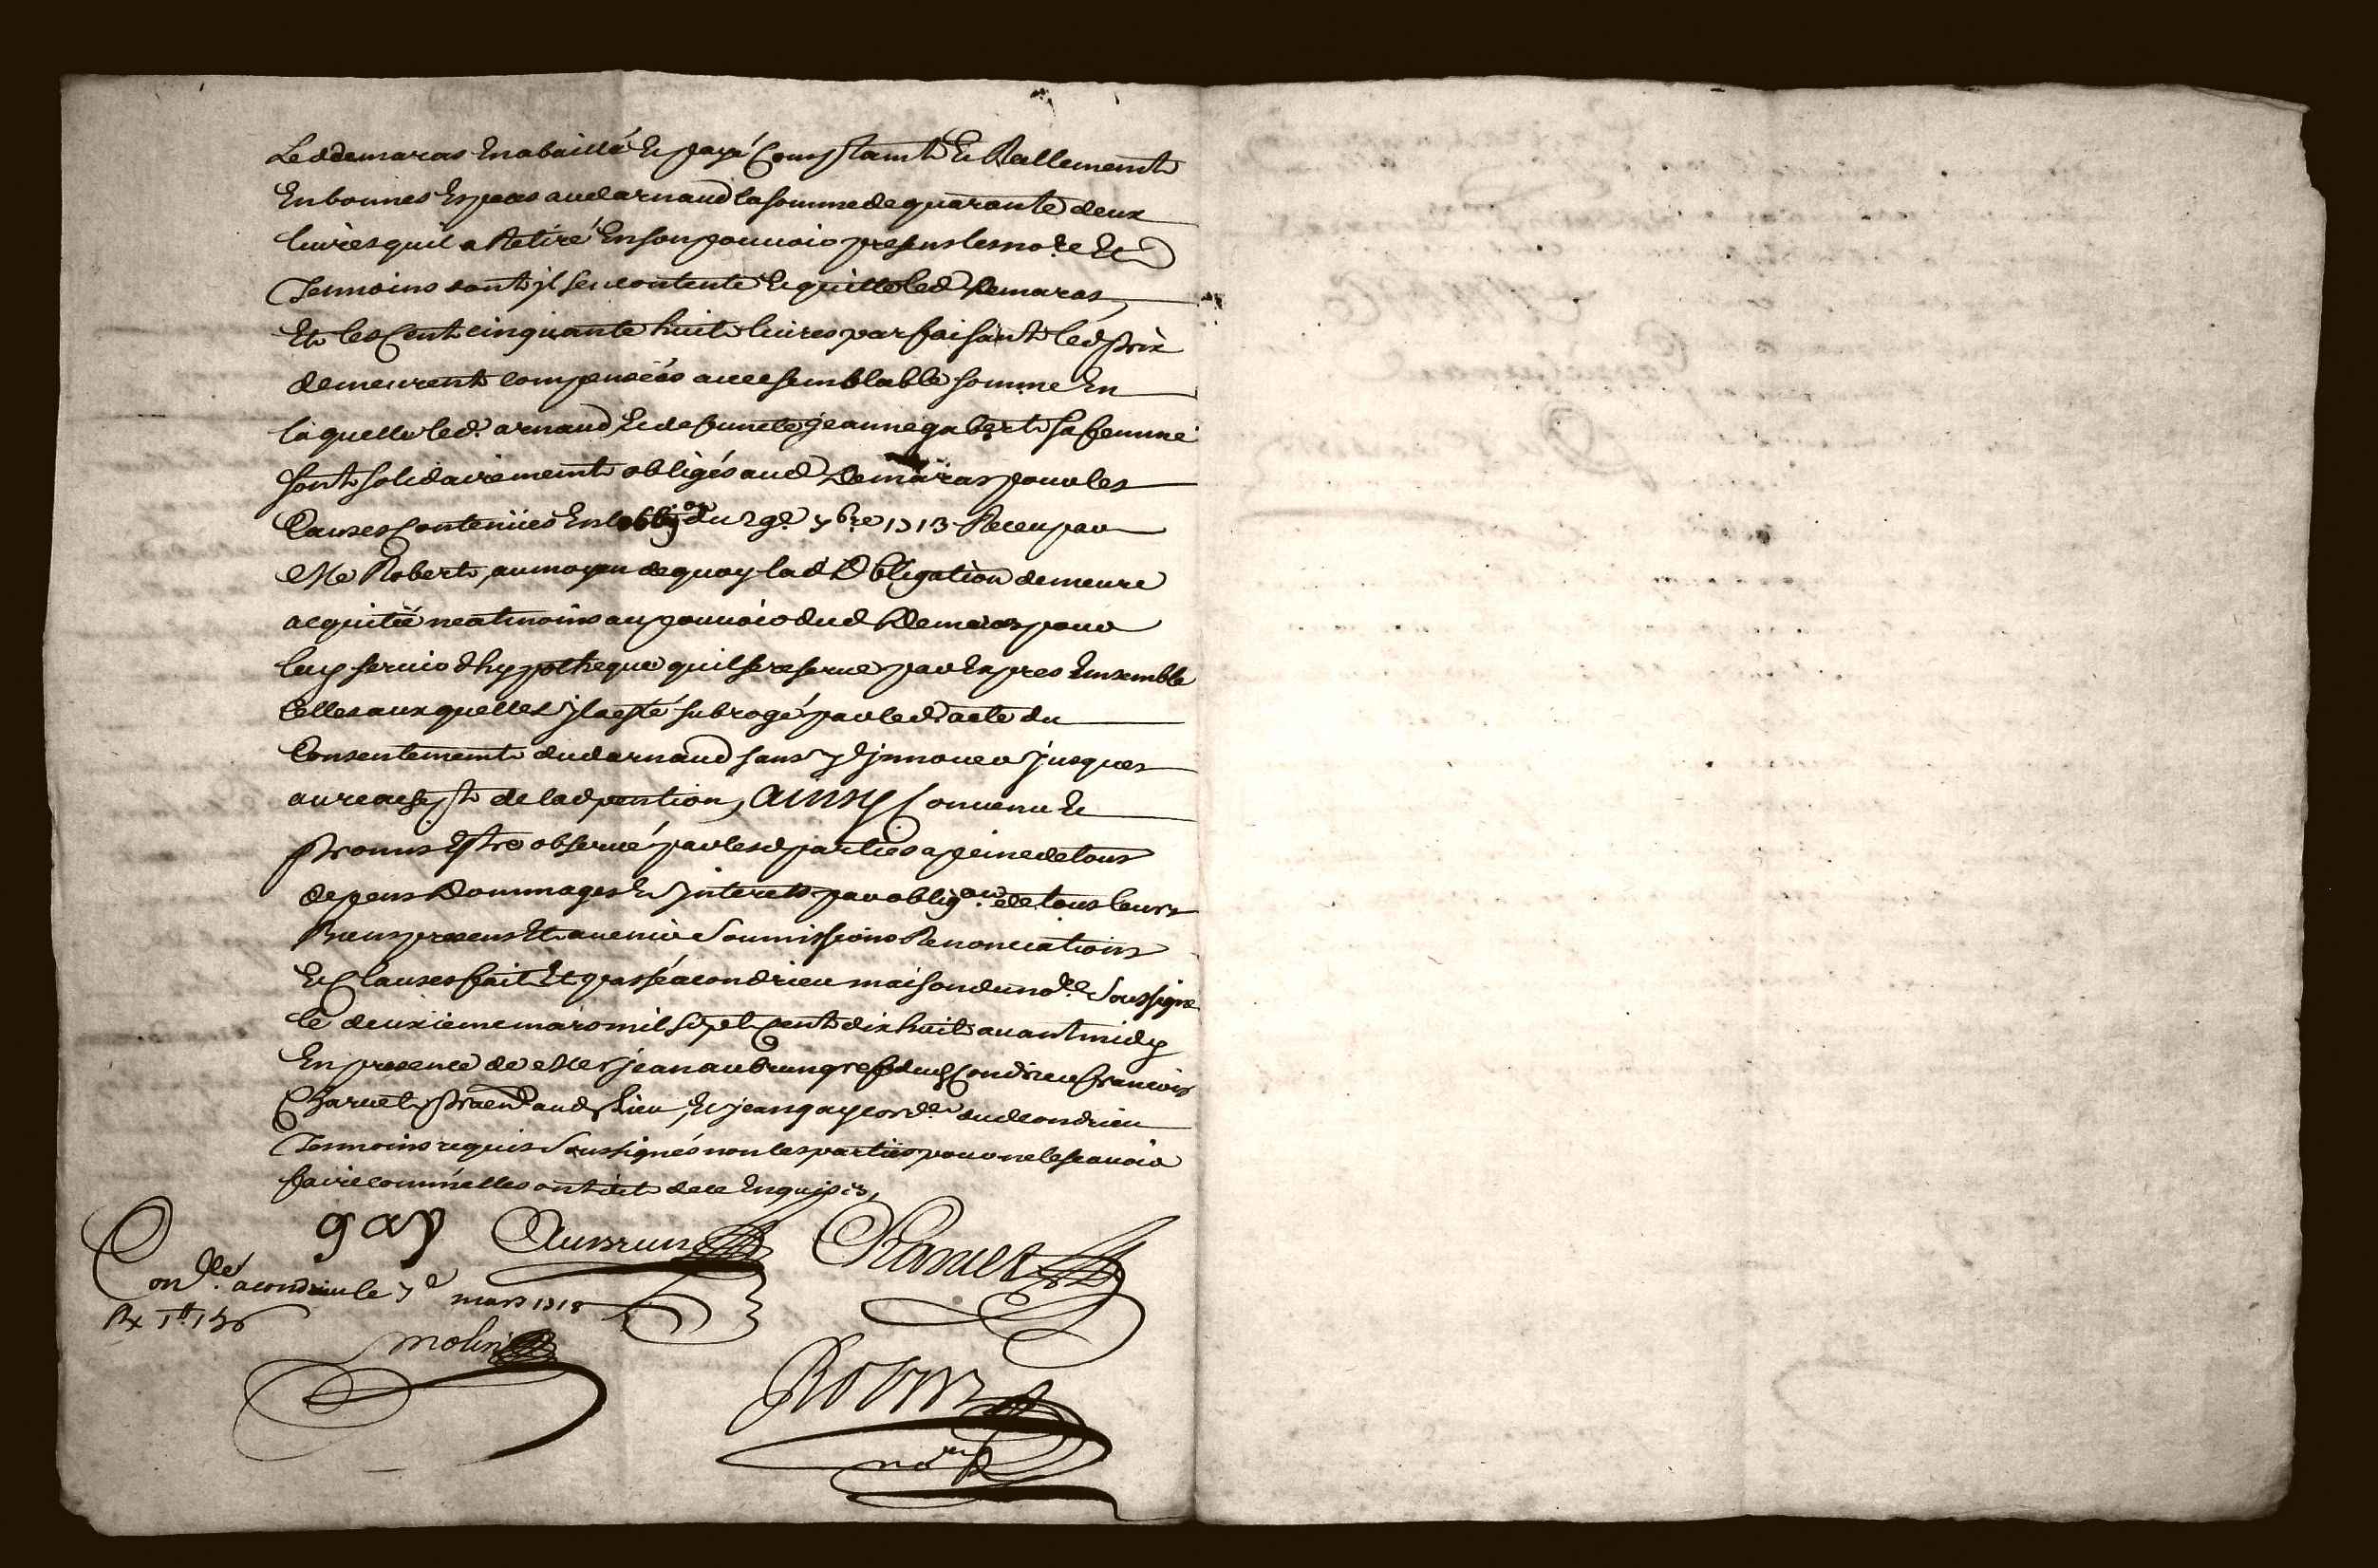 Led demaras En a baillé Et payé Comptamt Et Reellememt
En bonnes Especes aud arnaud la somme de quarante deux
liures quil a Retiré En son pouuoir presens les no.re Et
Temoins dont jl se contente Et quitte led Demaras,
Et les Cent cinquante huit liures parfaisant led prix
demeurent compensées auec semblable somme En
laquelle led. arnaud, Et defuncte jeanne gabert sa femme
sont solidairememt obligés aud Demaras pour les
Causes Contenües En lobligon du 29e 7bre 1713 Receu par
Me Robert, au moyen de quoy lad Obligation demeure
acquitée neatmoins au pouuoir dud Demaras pour
luy seruir dhypotheque quil se reserue par Expres Ensemble
Celles aux quelles jl a esté subrogé par led. acte du
Consentememt dud arnaud sans y jnnouer jusques
au reachept de lad pention, ainsy Conuenu Et
promis Estre obserué par lesd parties a peine de tous
depens Dommages Et jnterets par oblig.on de tous leurs
Biens presens Et auenir Soumissions Renonciations
Et Clauses fait Et passé a condrieu maison du no.re Soussigné
le deuxieme mars mil sept Cent dix huit auant midy
En presence de Mes jean aubrun greff dud Condrieu francois
Charuet, praen aud lieu, Et jean gay cord.er dud condrieu
Tesmoins requis Soussignés non les parties pour ne le scauoir
faire comm'elles ont dit de ce Enquises,
gay Aubrun Charuet
Con.lle a condrieu le 7e mars 1718
Rx 1# 1s6
molin
Robert
no.re